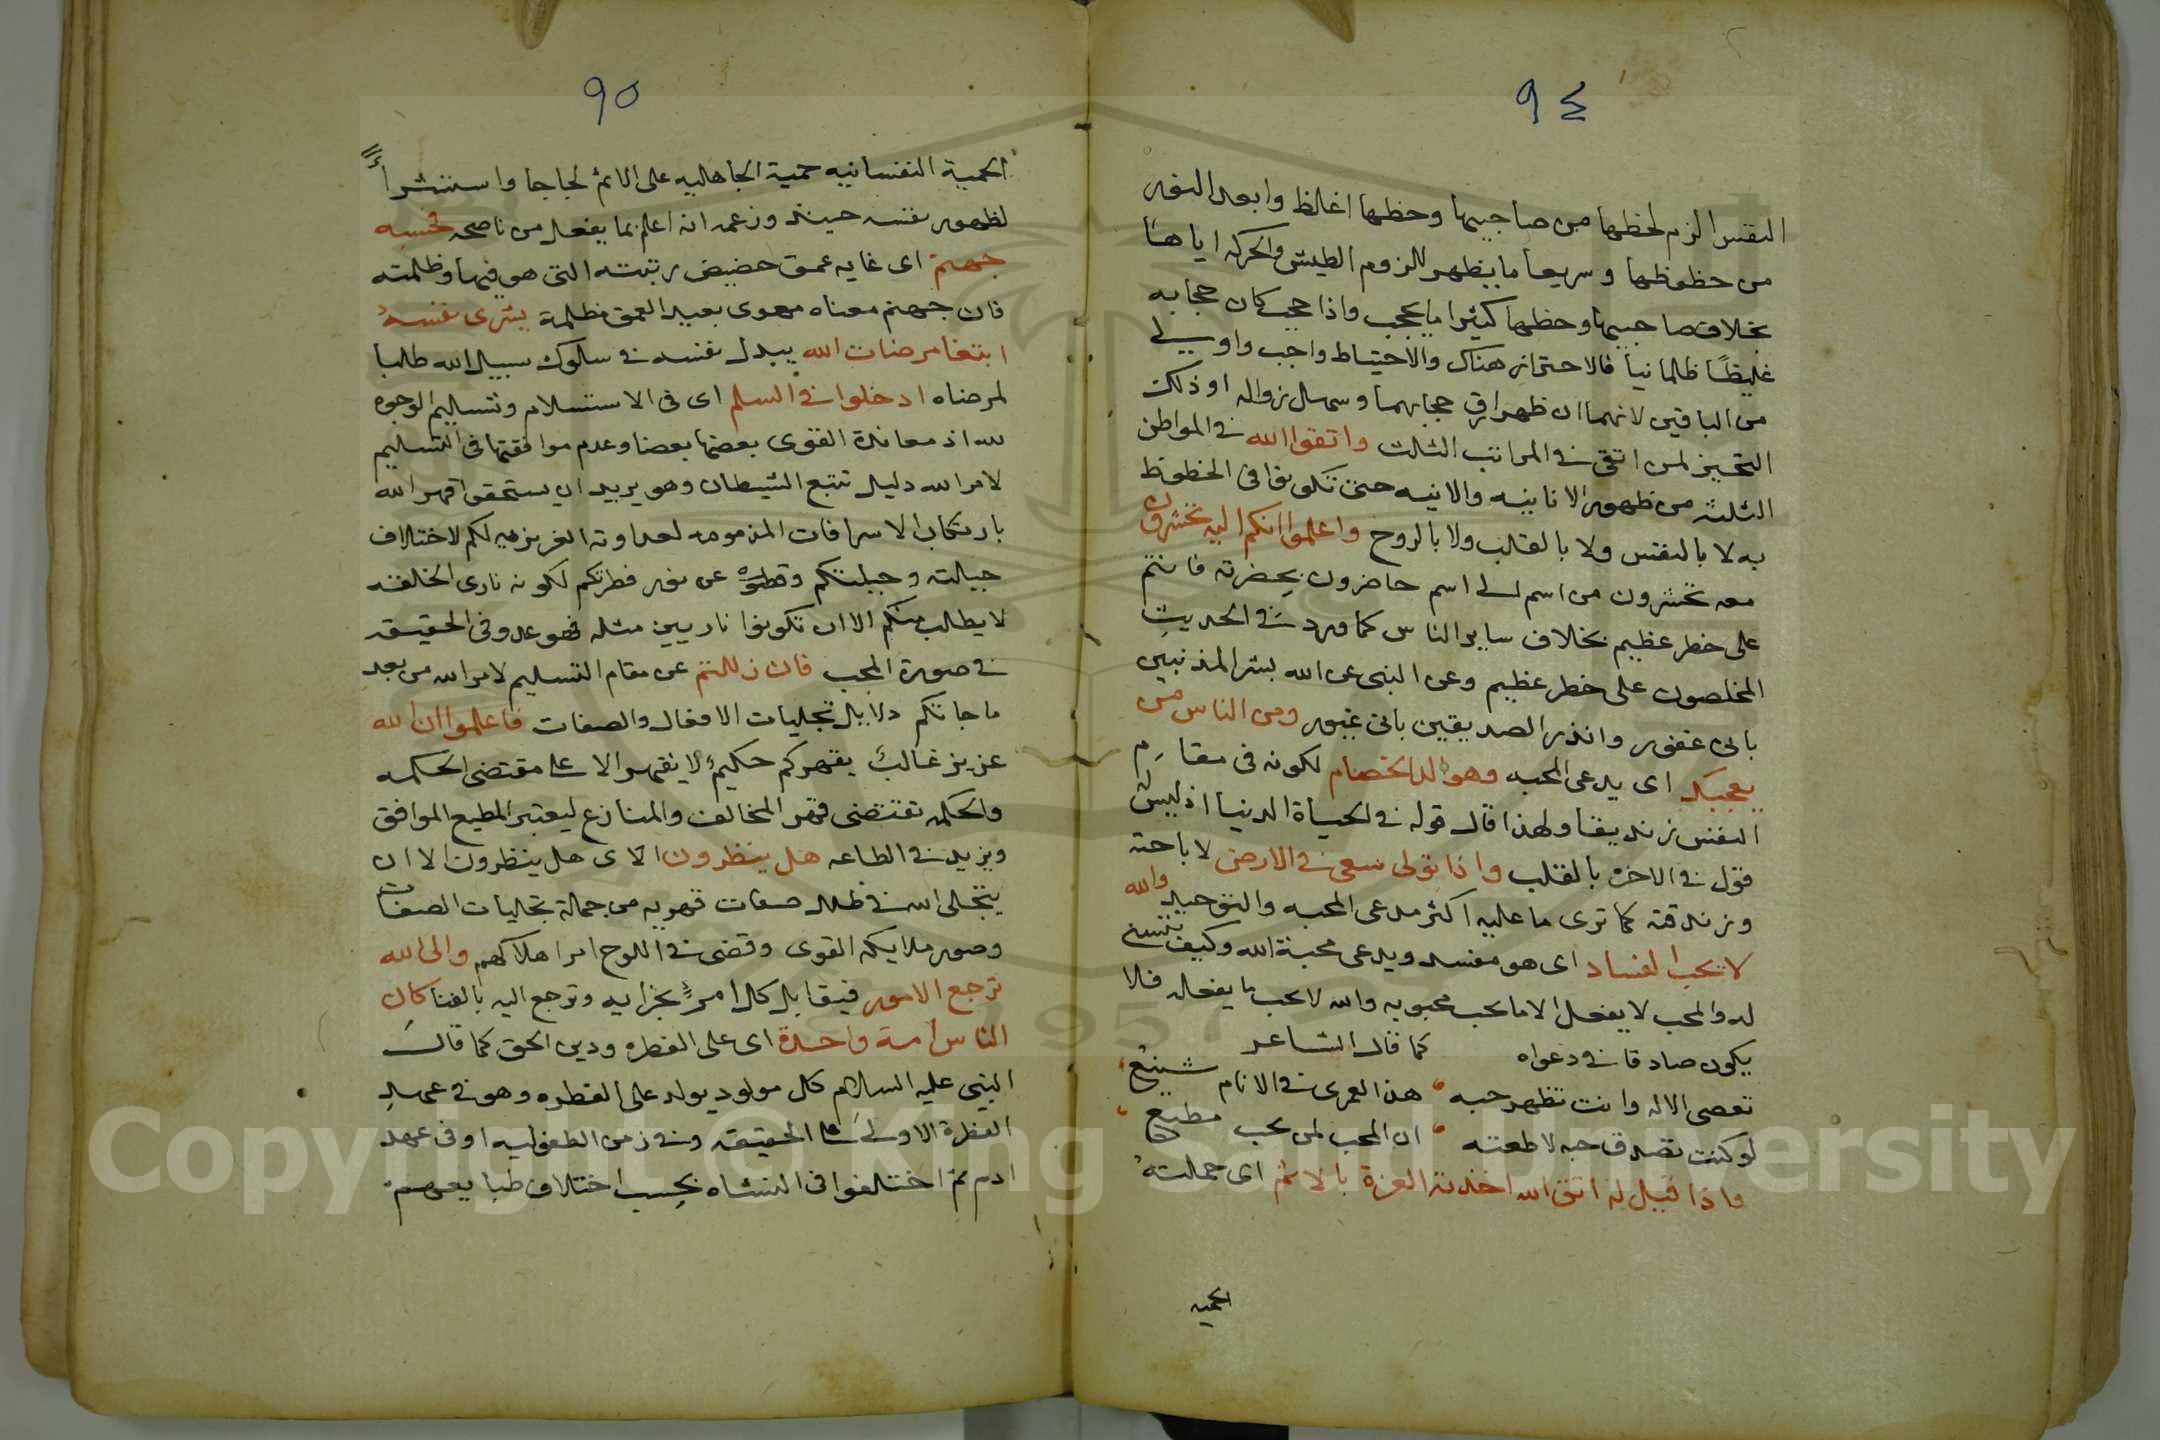 ٩٤
النفس الزم لحظها من صاحبيها وحظها اغلظ وابعد النور
من حظوظها وسريعا ما يظهر للزوم الطيش والحركه اياها
بخلاف صاحبيها وحظها كثيرا ما يحجب واذا حجب كان حجابه
غليظا ظلمانيا فالاحتراز هناك والاحتياط واجب واولى
من الباقيين لانهما ان ظهرا رق حجابهما وسهل زواله او ذلك
التخيير لمن اتقى في المراتب الثلث واتقوا الله في المواطن
الثلثه من ظهور الانانيه والانيه حتى تكونوا في الحظوظ
به لا بالنفس ولا بالقلب ولا بالروح واعلموا انكم اليه تحشرون
معه تحشرون من اسم الى اسم حاضرون بحضرته فانتم
على خطر عظيم بخلاف ساير الناس كما ورد في الحديث
المخلصون على خطر عظيم وعن النبي عن الله بشر المذنبين
بانى غفور وانذر الصديقين بانى غيور ومن الناس من
يعجبك اى يدعى المحبه وهو الد الخصام لكونه فى مقام
النفس زنديقا ولهذا قال قوله في الحياة الدنيا اذ ليس له
قول في الاخره بالقلب واذا تولى سعى في الارض لاباحته
وزندقته كما ترى ما عليه اكثر مدعى المحبه والتوحيد والله
لا يحب الفساد اى هو مفسد ويدعى محبة الله وكيف
له والمحب لا يفعل الا ما يحب محبوبه والله لا يحب ما يفعله فلا
يكون صادقا في دعواه كما قال الشاعر
تعصى الاله وانت تظهر حبه هذا لعمرى في الانام شنيع
لو كنت تصدق حبه لاطعته ان المحب لمن يحب مطيع
واذا قيل له اتق الله اخذته العزة بالاثم اى حملته
الحميه
٩٥
الحمية النفسانيه حمية الجاهليه على الاثم لجاجا
لظهور نفسه حينئذ وزعمه انه اعلم بما يفعل من ناصحه فحسبه
جهنم اى غايه عمق حضيض رتبته التى هو فيها وظلمته
فان جهنم معناه مهوى بعيد العمق مظلمة يشرى نفسه
ابتغا مرضات الله يبدل نفسه في سلوك سبيل الله طلبا
لمرضاه ادخلوا في السلم اى فى الاستسلام وتسليم الوجوه
لله اذ معاندة القوى بعضها بعضا وعدم موافقتها فى التسليم
لامر الله دليل تتبع الشيطان وهو يريد ان يستحقوا قهر الله
بارتكاب الاسرافات المذمومه لعداوته الغريزيه لكم لاختلاف
جبلته وجبلتكم عن نور فطرتكم لكونه نارى الخلقه
لا يطلب منكم الا ان تكونوا ناريين مثله فهو عدو فى الحقيقه
في صورة المحب فان زللتم عن مقام التسليم لامر الله من بعد
ما جاتكم دلايل تجليات الافعال والصفات فاعلموا ان الله
عزيز غالب يقهركم حكيم لا يقهر الا على مقتضى الحكمه
والحكمه تقتضى قهر المخالف والمنازع ليعتبر المطيع الموافق
ويزيد في الطاعه هل ينظرون الا اى هل ينظرون الا ان
يتجلى الله في ظلل صفات قهريه من جملة تجليات الصفات
وصور ملايكه القوى وقضى في اللوح امر اهلاكهم والى الله
ترجع الامور فيقابل كل امر بجزايه وترجع اليه بالفنا كان
الناس امة واحدة اى على الفطره ودين الحق كما قال
النبي عليه السلام كل مولود يولد على الفطره وهو في عهد
الفطرة الاولى على الحقيقه وفي زمن الطفوليه او فى عهد
ادم ثم اختلفوا فى النشاه بحسب اختلاف طبايعهم